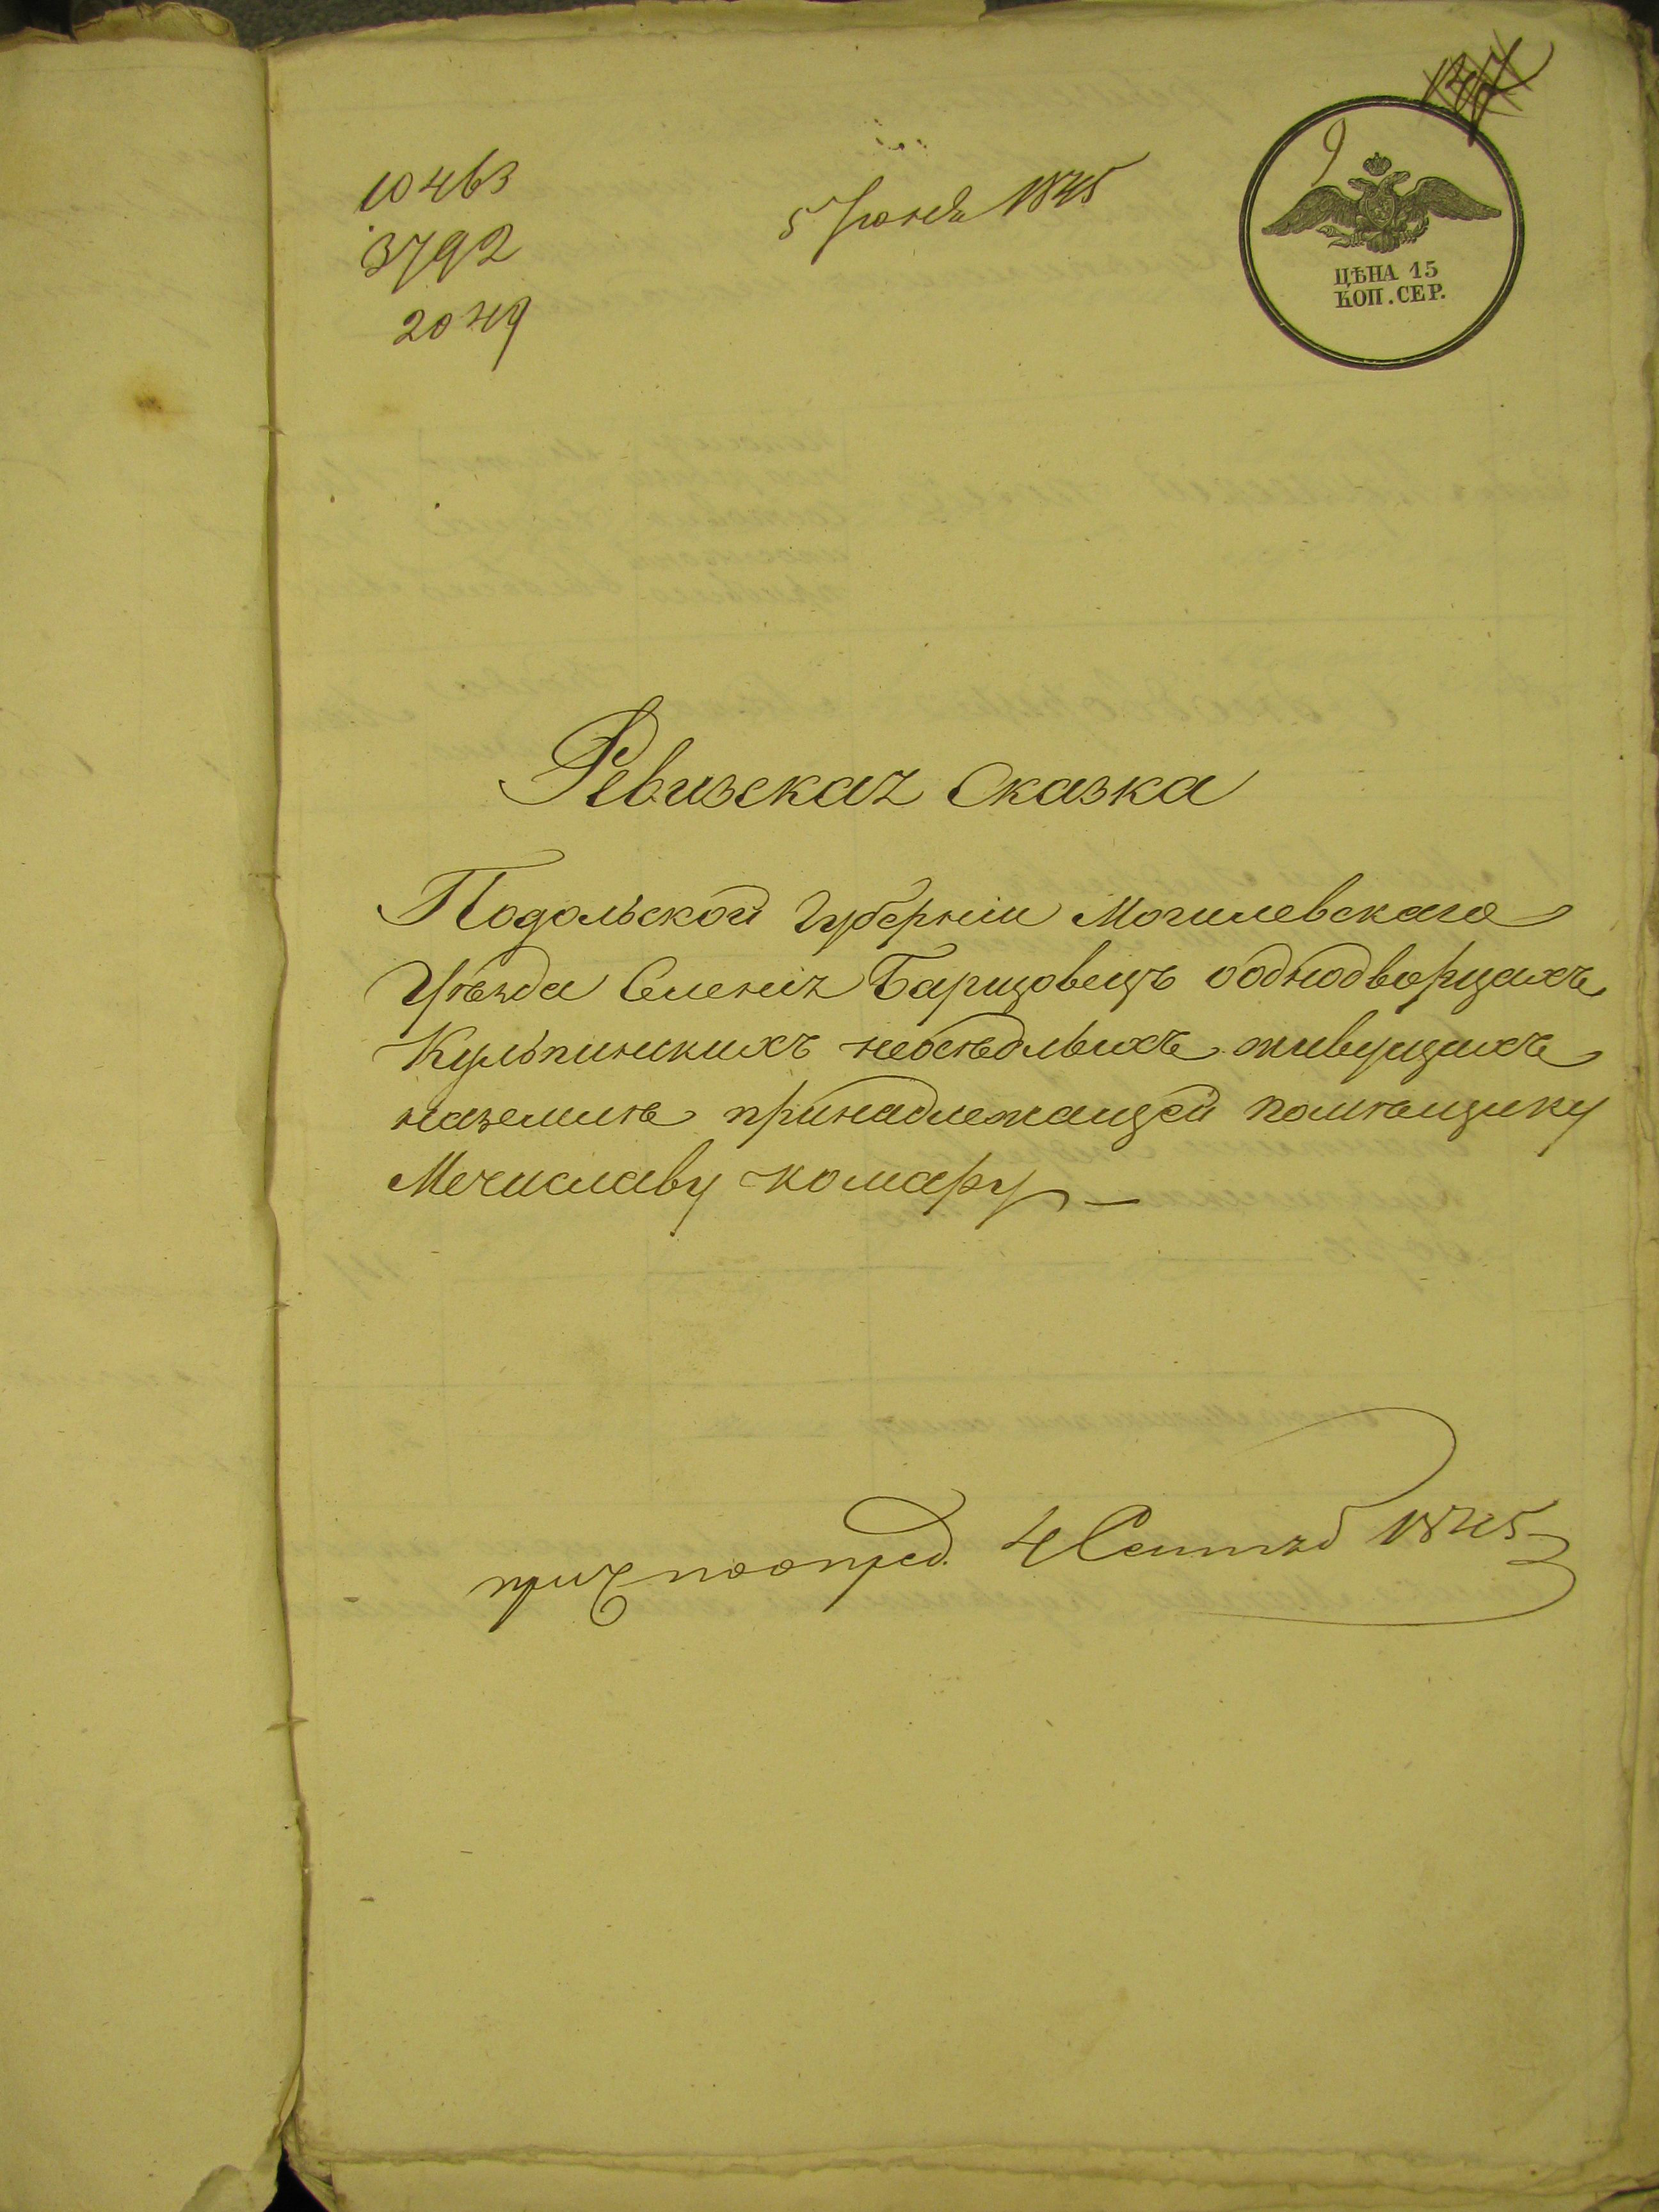 10463
3792
2049
5 Июня 1845
9
ЦѢНА 15
КОП. СЕР.
Ревизская Сказка
Подольской Губерніи Могилевскаго
Уѣзда Селенія Баришовецъ ободнодворцахъ
Кульпинскихъ неосѣдлыхъ живущихъ
наземлѣ принадлежащей помѣщику
Мечиславу Комару
поопред. 4 Сентяб 1845